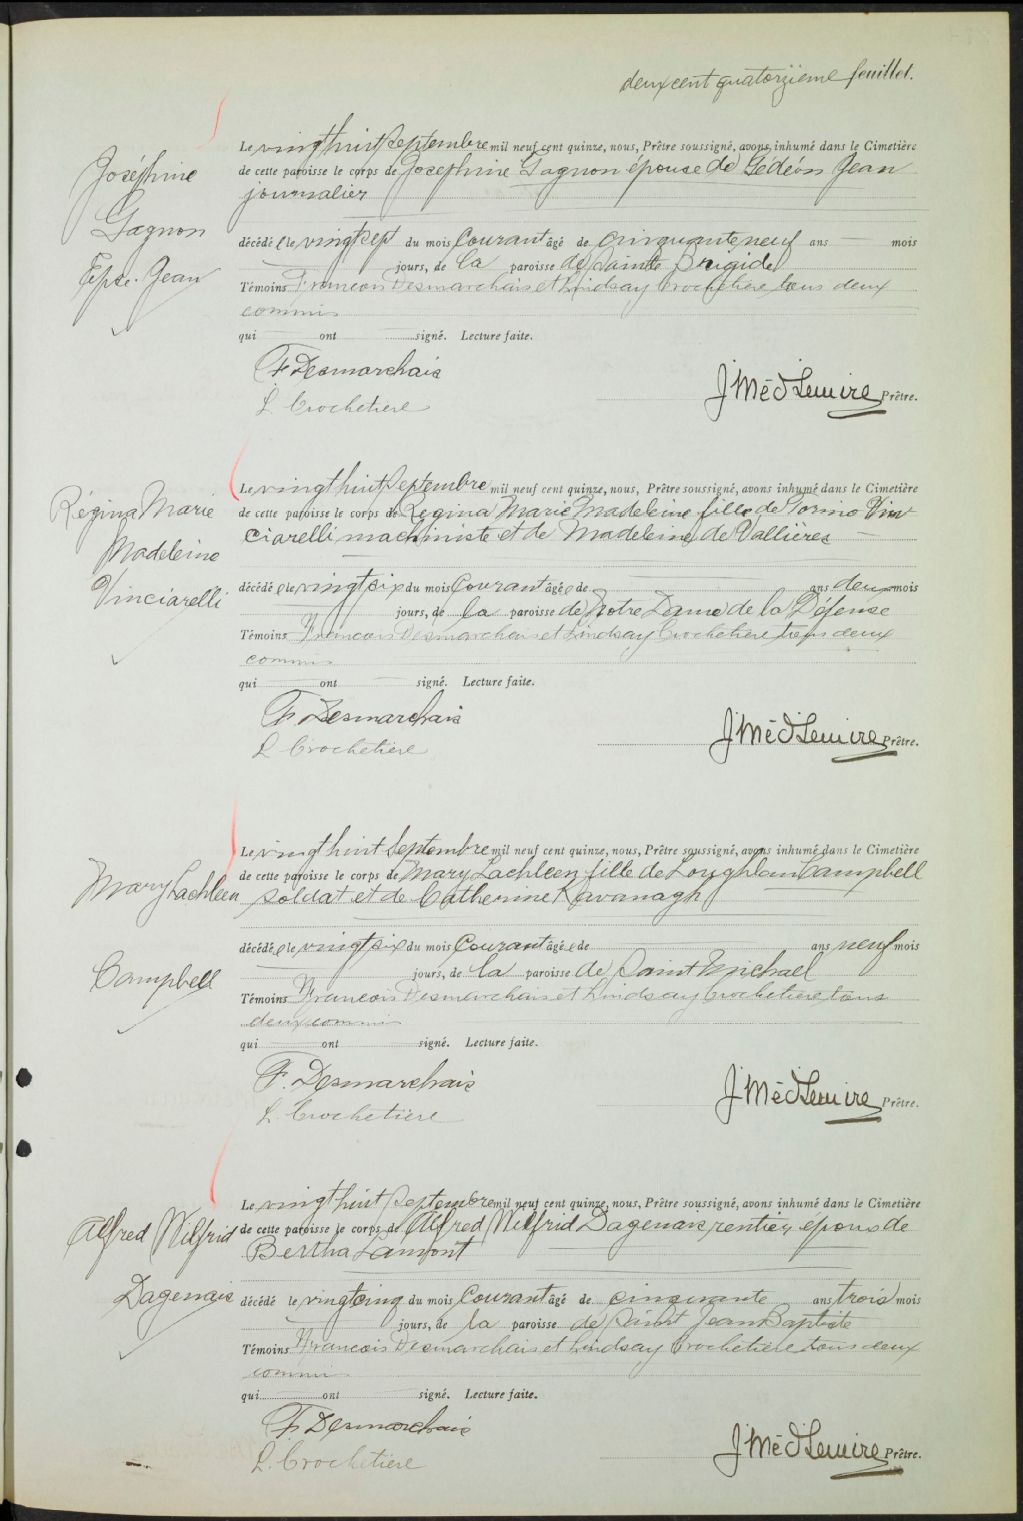 deux cent quatorzième feuillet.
Joséphine
Gagnon
Epse. Jean
Le vingt huit Septembre mil neuf cent quinze, nous, Prêtre soussigné, avons inhumé dans le Cimetière
de cette paroisse le corps de Josephine Gagnon épouse de Gédéon Jean
journalier
décédée le vingt sept du mois Courant âgé de cinquante neuf ans mois
jours, de la paroisse de Sainte Brigide
Témoins Francois Desmarchais et Lindsay Crochetiere tous deux
commis
qui ont signé. Lecture faite.
F. Desmarchais
L. Crochetiere
J Méd Lemire Prêtre.
Régina Marie
Madeleine
Vinciarelli
Le vingt huit Septembre mil neuf cent quinze, nous, Prêtre soussigné, avons inhumé dans le Cimetière
de cette paroisse le corps de Regina Marie Madeleine fille de Vin
ciarelli machiniste et de Madeleine de Vallières
décédée le vingt six du mois Courant âgée de ans deux mois
jours, de la paroisse de Notre Dame de la Défense
Témoins Francois Desmarchais et Lindsay Crochetiere tous deux
commis
qui ont signé. Lecture faite.
F. Desmarchais
L Crochetière
J Méd Lemire Prêtre.
Mary Lachleen
Campbell
Le vingt huit Septembre mil neuf cent quinze, nous, Prêtre soussigné, avons inhumé dans le Cimetière
de cette paroisse le corps de Mary Lachleen fille de Loughlan Campbell
soldat et de Catherine Kavanagh
décédée le vingt six du mois Courant âgée de ans neuf mois
jours, de la paroisse de Saint Michael
Témoins Francois Desmarchais et Lindsay Crochetiere tous
deux commis
qui ont signé. Lecture faite.
F. Desmarchais
L. Crochetiere
J Méd Lemire Prêtre.
Alfred Wilfrid
Dagenais
Le vingt huit Septembre mil neuf cent quinze, nous, Prêtre soussigné, avons inhumé dans le Cimetière
de cette paroisse le corps de Alfred Wilfrid Dagenais rentier, époux de
Bertha Lamont
décédé le vingt cinq du mois Courant âgé de cinquante ans trois mois
jours, de la paroisse de Saint Jean Baptiste
Témoins Francois Desmarchais et Lindsay Crochetiere tous deux
commis
qui ont signé. Lecture faite.
F. Desmarchais
L. Crochetiere
J Méd Lemire Prêtre.